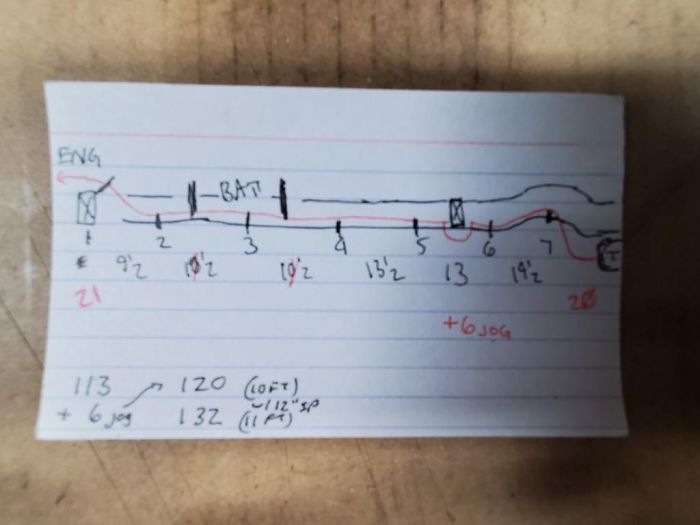 ENG
BAT
2 3 4 5 6 7
9 1/2 10 1/2 10 1/2 13 1/2 13 19 1/2
21 20
+6 JOG
113 120 (10FT)
+ 6 jog 132 (11 FT)